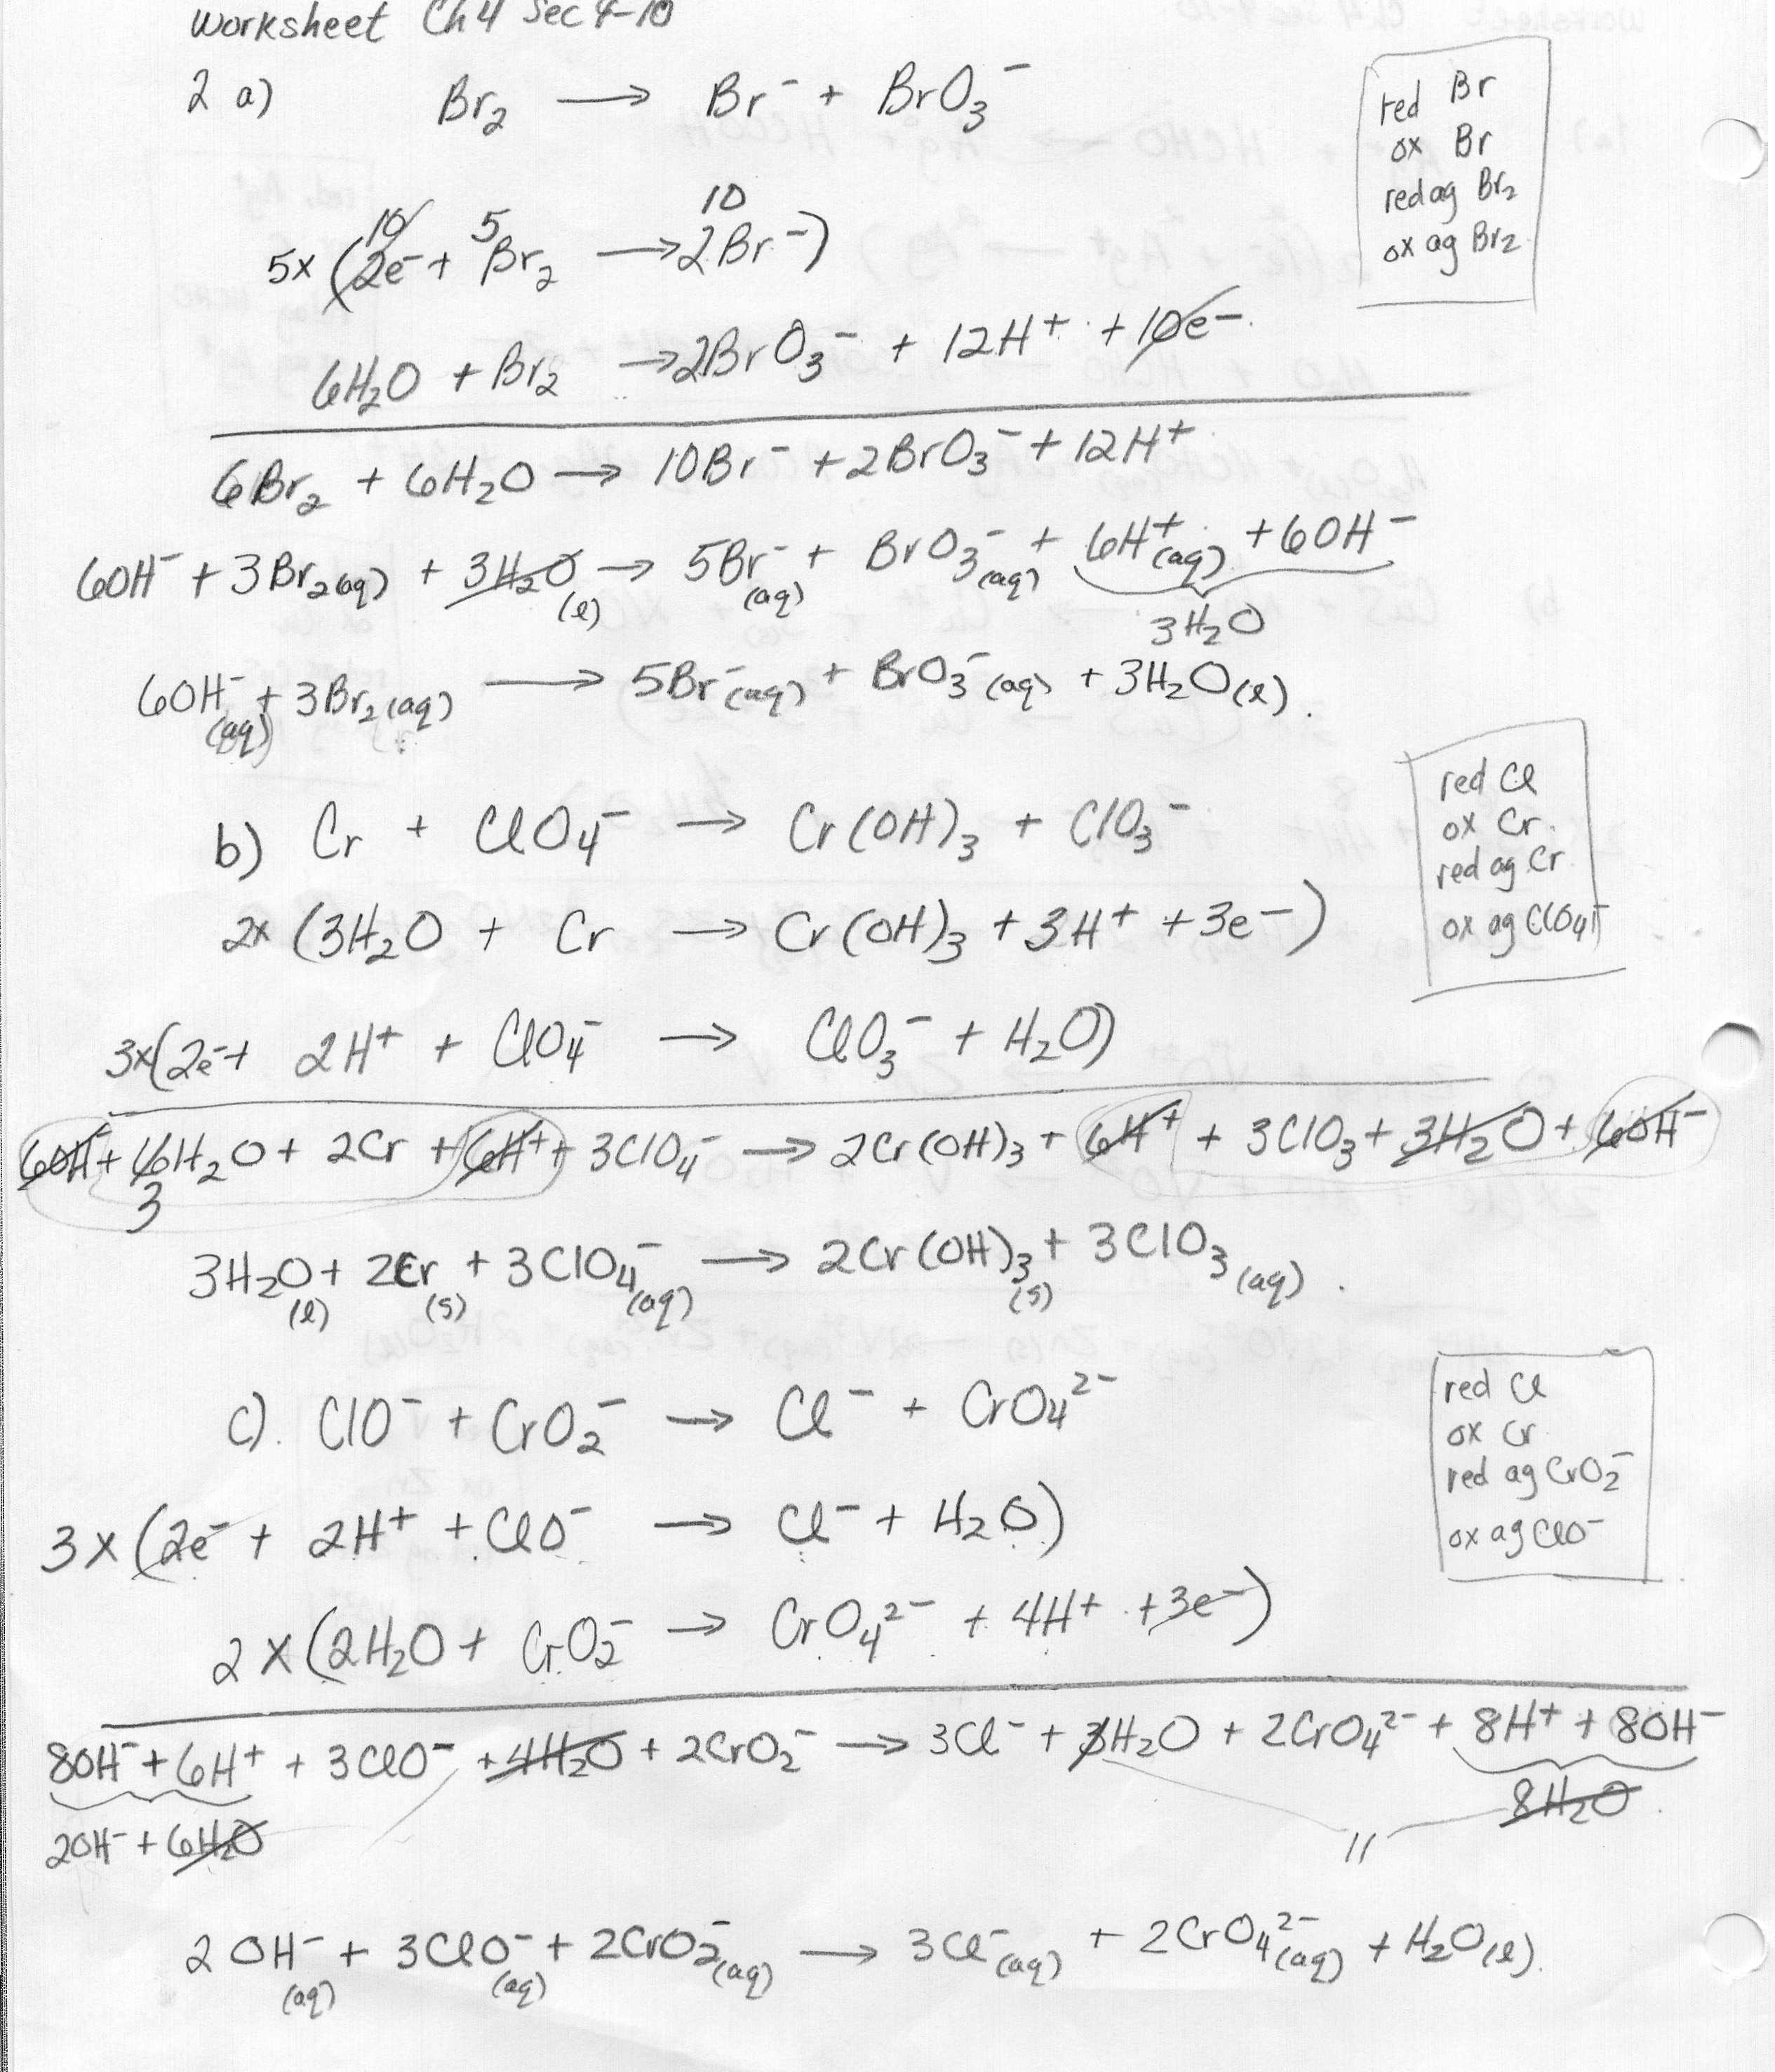 Worksheet Ch 4 Sec 4-10
2 a) Br₂ → Br⁻ + BrO₃⁻
red Br
ox Br
red ag Br₂
ox ag Br₂
10 5 10
5x (2e⁻ + Br₂ → 2Br⁻)
6H₂O + Br₂ → 2BrO₃⁻ + 12H⁺ + 10e⁻
6Br₂ + 6H₂O → 10Br⁻ + 2BrO₃⁻ + 12H⁺
6OH⁻ + 3Br₂(aq) + 3H₂O(l) → 5Br⁻(aq) + BrO₃⁻(aq) + 6H⁺(aq) + 6OH⁻
3H₂O
6OH⁻(aq) + 3Br₂(aq) → 5Br⁻(aq) + BrO₃⁻(aq) + 3H₂O(l).
b) Cr + ClO₄⁻ → Cr(OH)₃ + ClO₃⁻
red Cl
ox Cr
red ag Cr
ox ag ClO₄⁻
2x (3H₂O + Cr → Cr(OH)₃ + 3H⁺ + 3e⁻)
3x(2e⁻+ 2H⁺ + ClO₄⁻ → ClO₃⁻ + H₂O)
6OH⁻ + 6H₂O + 2Cr + 6H⁺ + 3ClO₄⁻ → 2Cr(OH)₃ + 6H⁺ + 3ClO₃ + 3H₂O + 6OH⁻
3
3H₂O(l) + 2Cr(s) + 3ClO₄⁻(aq) → 2Cr(OH)₃(s) + 3ClO₃(aq).
c). ClO⁻ + CrO₂⁻ → Cl⁻ + CrO₄²⁻
red Cl
ox Cr
red ag CrO₂⁻
ox ag ClO⁻
3x (2e⁻ + 2H⁺ + ClO⁻ → Cl⁻ + H₂O)
2x (2H₂O + CrO₂⁻ → CrO₄²⁻ + 4H⁺ + 3e⁻)
8OH⁻ + 6H⁺ + 3ClO⁻ + 4H₂O + 2CrO₂⁻ → 3Cl⁻ + 3H₂O + 2CrO₄²⁻ + 8H⁺ + 8OH⁻
8H₂O
2OH⁻ + 6H₂O
11
2OH⁻(aq) + 3ClO⁻(aq) + 2CrO₂⁻(aq) → 3Cl⁻(aq) + 2CrO₄²⁻(aq) + H₂O(l).